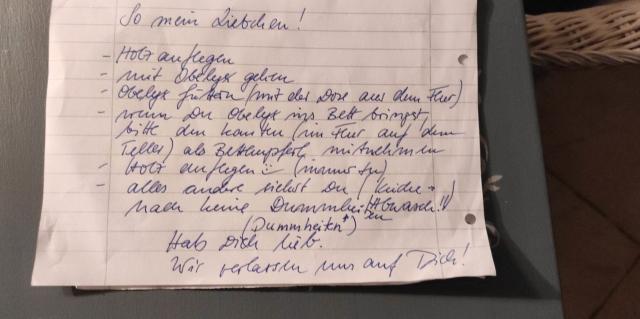 So mein Liebchen!
- Holz auflegen
- mit Obelyx gehen
- Obelyx füttern (mit der Dose aus dem Flur)
- wenn Du Obelyx ins Bett bringst,
bitte den Knochen (im Flur auf dem
Teller) als Betthupferl mitnehmen
- Holz auflegen (immer zu)
- alles andere siehst Du (Küche →
Abwasch!!)
mach keine Dummheiten
(Dummheiten*)
Hab Dich lieb.
Wir verlassen uns auf Dich!